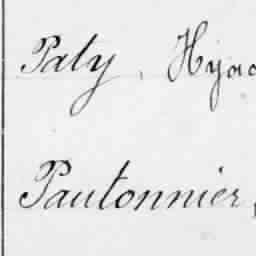 Paty, Hyac
Pautonnier,